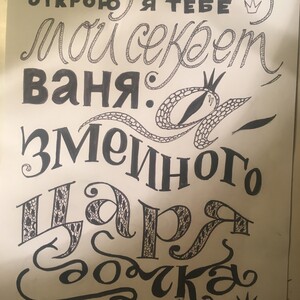 ОТКРОЮ Я ТЕБЕ
мой секрет
ВАНЯ:
Я
ЗМЕИНОГО
ЦАРЯ
дочка